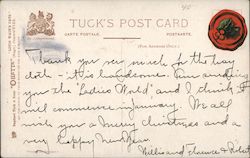 TUCK'S POST CARD
CARTE POSTALE. POSTKARTE.
(FOR ADDRESS ONLY.)
Thank you so much for the tray
cloth - it is handsome. Am sending
you the "Ladies World" and I think it
will commence in January. We all
wish you a merry Christmas and a
very happy New Year.
Willis and Florence & Robert